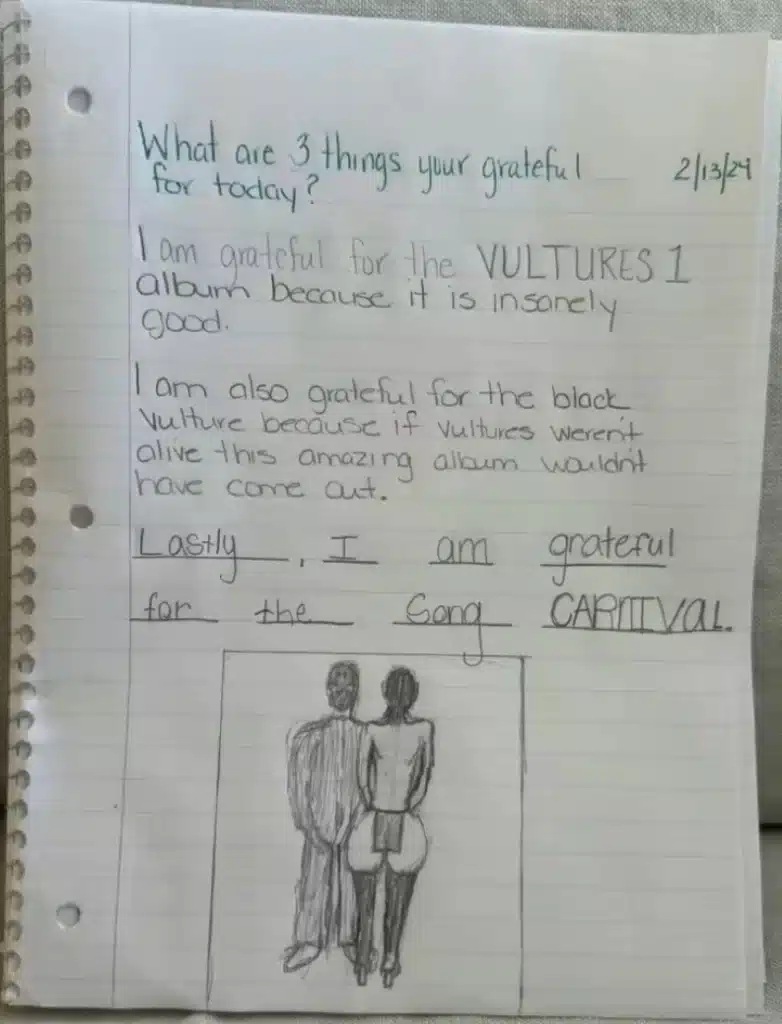 What are 3 things your grateful 2/13/24
for today?
I am grateful for the VULTURES 1
album because it is insanely
good.
I am also grateful for the black
Vulture because if vultures weren't
alive this amazing album wouldn't
have come out.
Lastly, I am grateful
for the Song CARNIVAL.